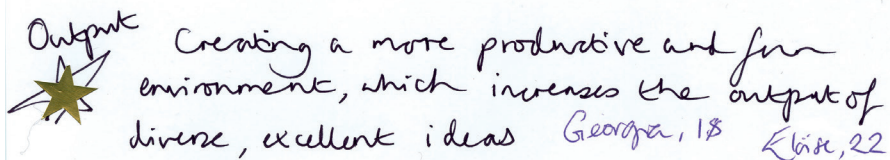 Output
Creating a more productive and fun
environment, which increases the output of
diverse, excellent ideas Georgia, 18 Eloise, 22